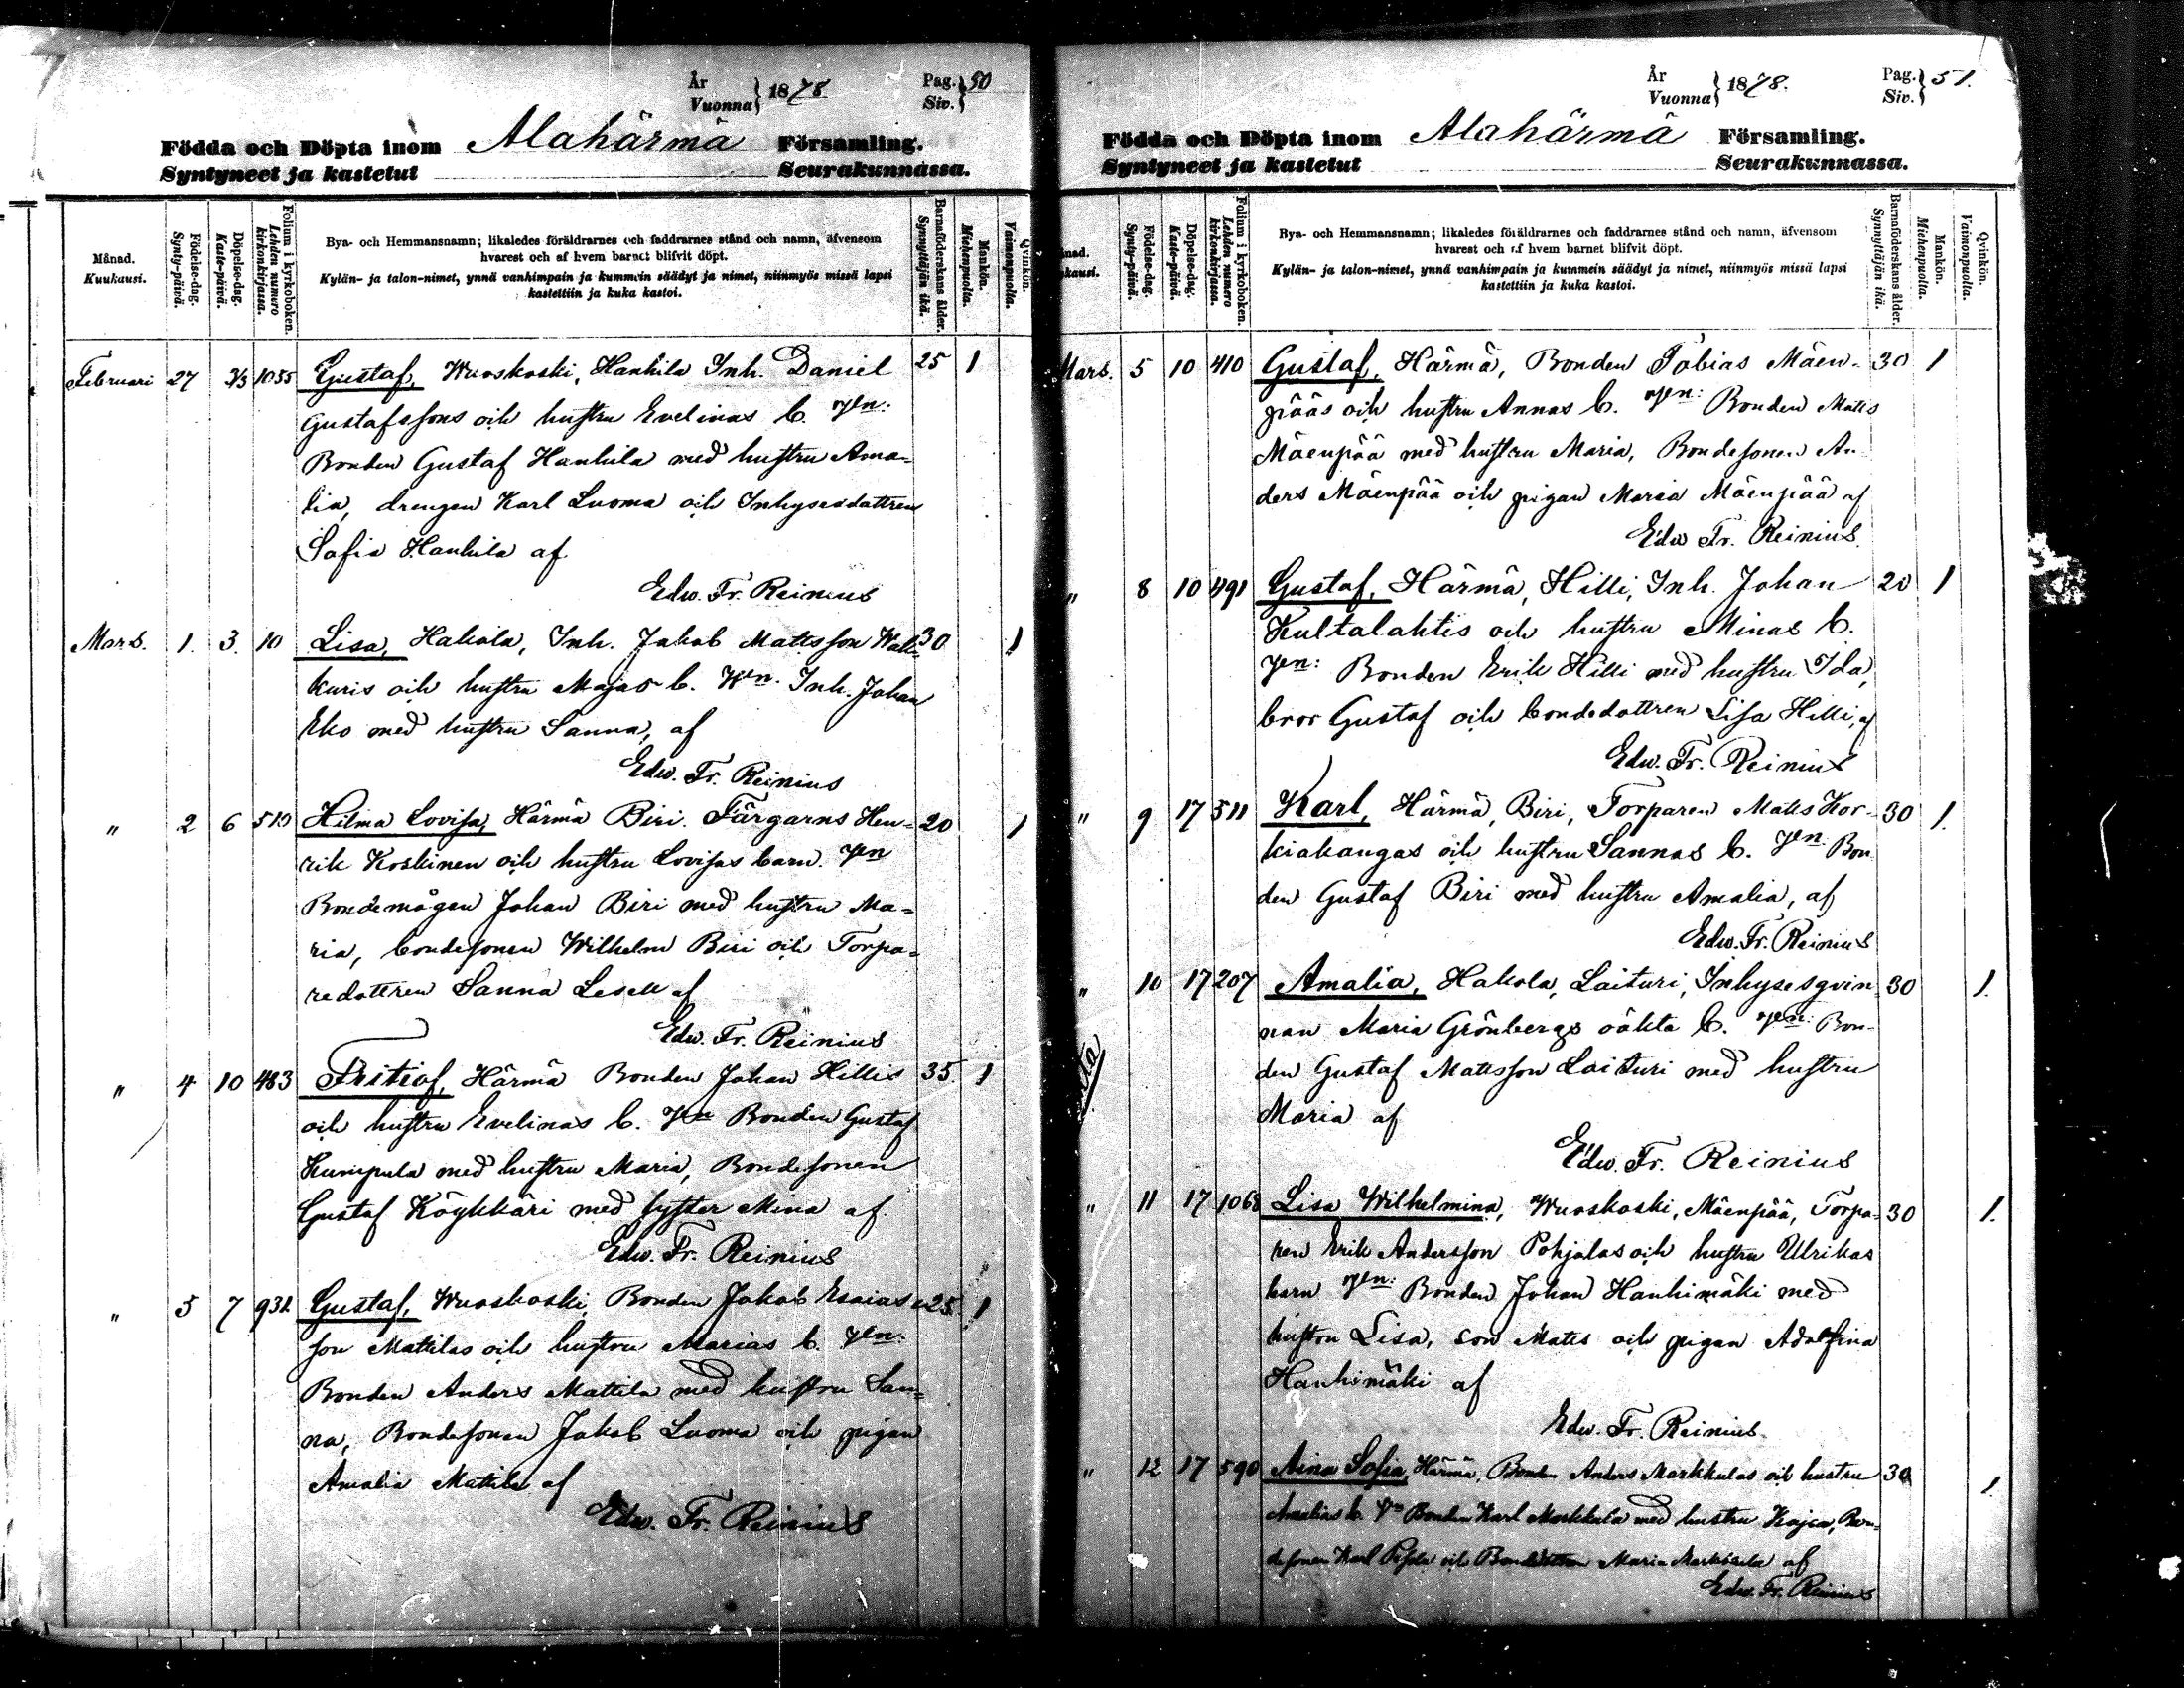 År
Vuonna} 1878
Pag.
Siv.} 50
Födda och Döpta inom Alahärmä Församling.
Syntyneet ja kastetut Seurakunnassa.
Månad.
Kuukausi.
Födelse-dag.
Synty-päivä.
Döpelse-dag.
Kaste-päivä.
Folium i kyrkoboken.
Lehden numero
kirkonkirjassa.
Bya- och Hemmansnamn; likaledes föräldrarnes och faddrarnes stånd och namn, äfvensom
hvarest och af hvem barnet blifvit döpt.
Kylän- ja talon-nimet, ynnä vanhimpain ja kummein säädyt ja nimet, niinmyös missä lapsi
kastettiin ja kuka kastoi.
Barnaföderskans ålder.
Synnyttäjän ikä.
Mankön.
Miehenpuolta.
Qvinkön.
Vaimonpuolta.
Februari 27 3/3 1055 Gustaf, Wuoskoski, Hanhila Inh. Daniel 25 1
Gustafssons och hustru Evelinas b.
Bonden Gustaf Hanhila med hustru Ama-
lia, drengen Karl Luoma och Inhysesdattren
Sofia Hanhila af
Edw. Fr. Reinius
Mars. 1. 3. 10 Lisa, Hakola, Inh. Jakob Mattsson 30 1
kuris och hustru Majas b. Inh. Johan
Eko med hustru Sanna, af
Edw. Fr. Reinius
" 2 6 Hilma Lovisa, Härmä Biri. Färgarns Hen- 20 1
rik Koskinen och hustru Lovisas barn.
Bondemågen Johan Biri med hustru Ma-
ria, bondesonen Wilhelm Biri och Torpa-
redottren Sanna af
Edw. Fr. Reinius
" 4 10 483 Fritiof, Härmä Bonden Johan Hillis 35 1
och hustru Evelinas b. Bonden Gustaf
Kumpula med hustru Maria, Bondesonen
Gustaf Köykkäri med syster Mina af
Edw. Fr. Reinius
" 5 7 Gustaf, Wuoskoski, Bonden Jakob Esaias- 25 1
son Mattilas och hustru Marias b.
Bonden Anders Mattila med hustru San-
na, Bondesonen Jakob Luoma och pigan
Amalia Mattila af
Edw. Fr. Reinius
År
Vuonna} 1878.
Pag.
Siv.} 51.
Födda och Döpta inom Alahärmä Församling.
Syntyneet ja kastetut Seurakunnassa.
Födelse-dag.
Synty-päivä.
Döpelse-dag.
Kaste-päivä.
Folium i kyrkoboken.
Lehden numero
kirkonkirjassa.
Bya- och Hemmansnamn; likaledes föräldrarnes och faddrarnes stånd och namn, äfvensom
hvarest och af hvem barnet blifvit döpt.
Kylän- ja talon-nimet, ynnä vanhimpain ja kummein säädyt ja nimet, niinmyös missä lapsi
kastettiin ja kuka kastoi.
Barnaföderskans ålder.
Synnyttäjän ikä.
Mankön.
Miehenpuolta.
Qvinkön.
Vaimonpuolta.
Mars. 5 10 410 Gustaf, Härmä, Bonden Tobias Mäen- 30 1
pääs och hustru Annas b. Bonden Matts
Mäenpää med hustru Maria, Bondesonen An-
ders Mäenpää och pigan Maria Mäenpää af
Edw Fr. Reinius.
" 8 10 491 Gustaf, Härmä, Hilli, Inh. Johan 20 1
Kultalahtis och hustru Minas b.
Bonden Erik Hilli med hustru Ida,
bror Gustaf och bondedottren Lisa Hilli, af
Edw. Fr. Reinius
" 9 17 511 Karl, Härmä, Biri, Torparen Matts Kor- 30 1.
kiakangas och hustru Sannas b. Bon-
den Gustaf Biri med hustru Amalia, af
Edw. Fr. Reinius
" 10 17 207 Amalia, Hakola, Laituri, Inhysesqvin- 30 1.
nan Maria Grönbergs oäkta b. Bon-
den Gustaf Mattsson Laituri med hustru
Maria af
Edw. Fr. Reinius
" 11 17 1068 Lisa Wilhelmina, Wuoskoski, Mäenpää, Torpa- 30 1.
ren Erik Andersson Pohjalas och hustru Ulrikas
barn Bonden Johan Hanhimäki med
hustru Lisa, son Matts och pigan Adolfina
Hanhimäki af
Edw. Fr. Reinius
" 12 17 590 Aina Sofia, Härmä, Bonden Anders Markkulas och hustru 30 1
Amalias b. Bonden Karl Markkula med hustru Kajsa, Bon-
desonen Karl och Maria Markkula af
Edw. Fr. Reinius